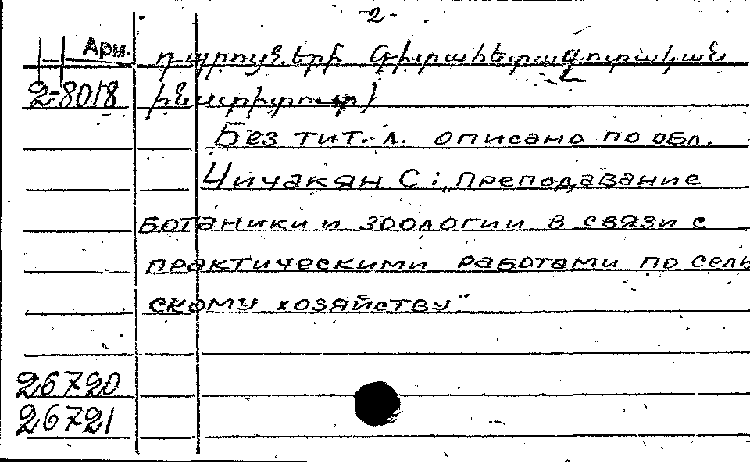 -2-
Арм.
դպրոցների Գիտահետազոտական
2-8018 ինստիտուտ)
Без тит. л. описано по обл.
Чичакян С: „Преподавание
ботаники и зоологии в связи с
практическими работами по сель
скому хозяйству"
26720
26721